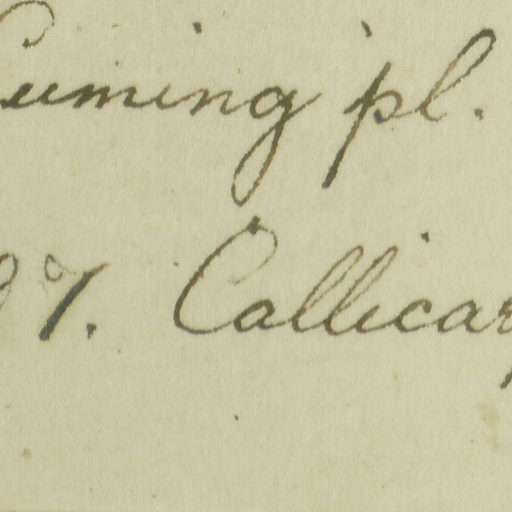 Cuming pl.
7. Callicar